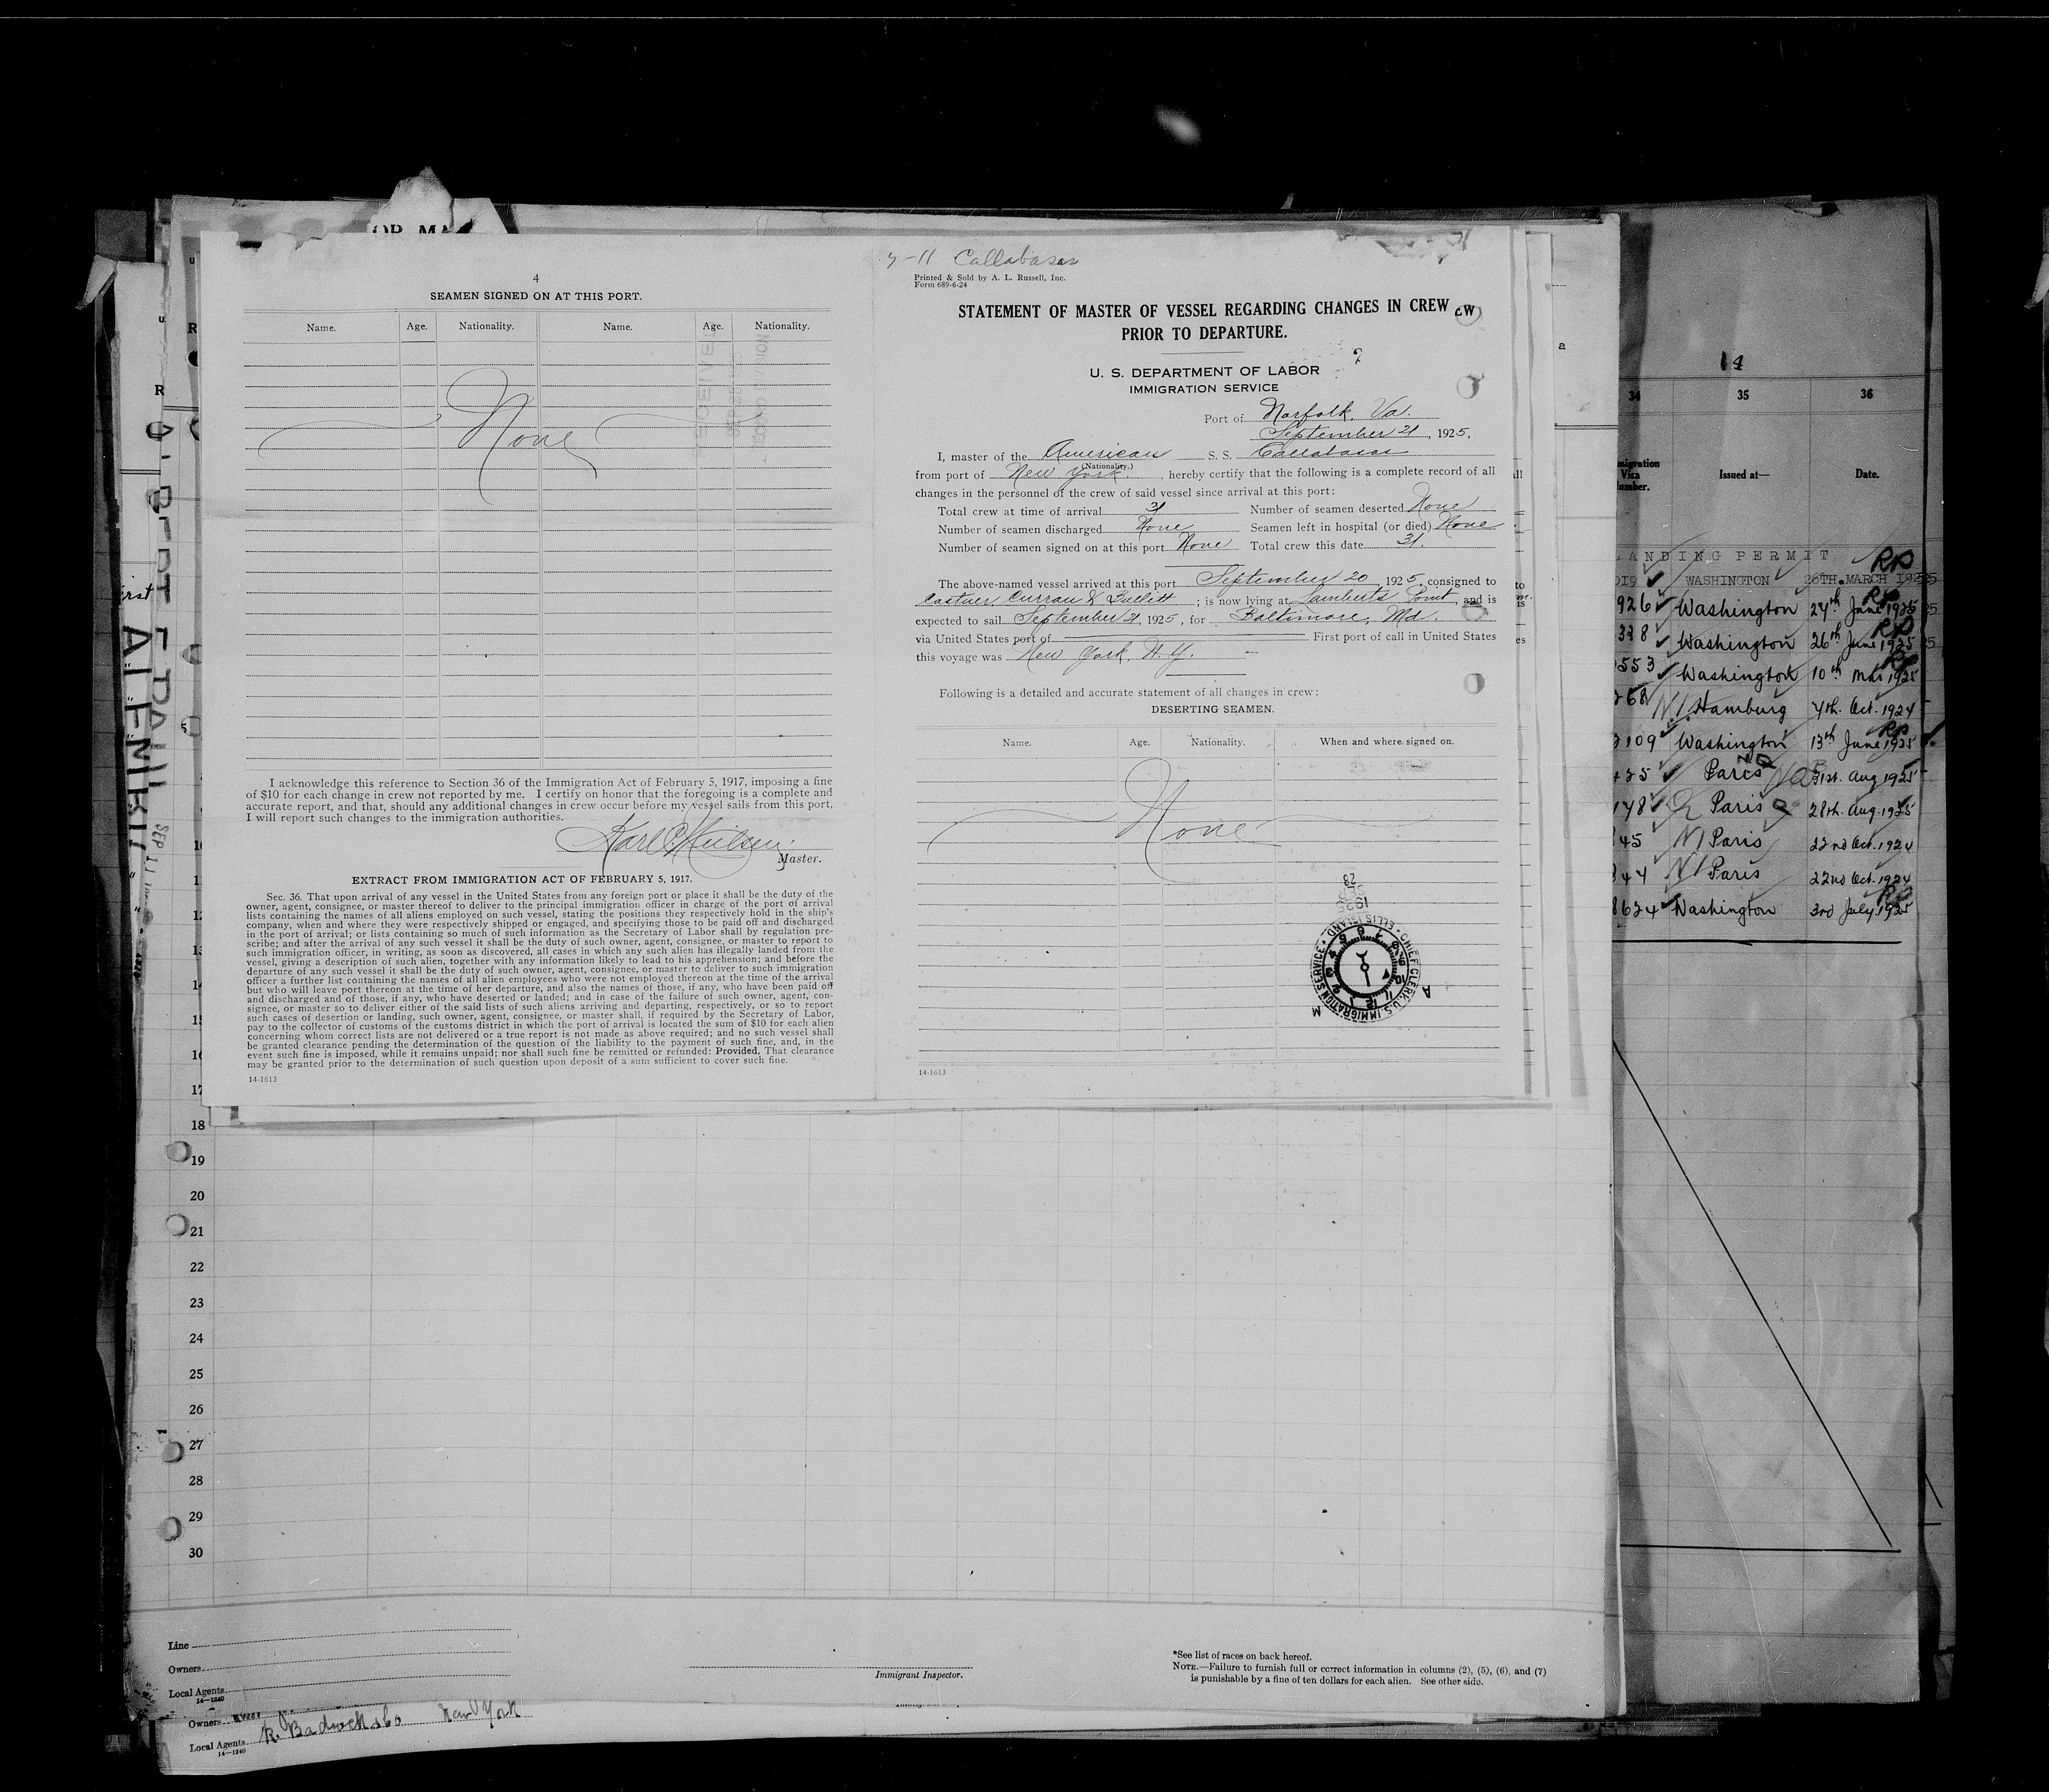 4
SEAMEN SIGNED ON AT THIS PORT.
Name. Age. Nationality. Name. Age. Nationality.
None
I acknowledge this reference to Section 36 of the Immigration Act of February 5, 1917, imposing a fine
of $10 for each change in crew not reported by me. I certify on honor that the foregoing is a complete and
accurate report, and that, should any additional changes in crew occur before my vessel sails from this port,
I will report such changes to the immigration authorities.
Master.
EXTRACT FROM IMMIGRATION ACT OF FEBRUARY 5, 1917.
Sec. 36. That upon arrival of any vessel in the United States from any foreign port or place it shall be the duty of the
owner, agent, consignee, or master thereof to deliver to the principal immigration officer in charge of the port of arrival
lists containing the names of all aliens employed on such vessel, stating the positions they respectively hold in the ship's
company, when and where they were respectively shipped or engaged, and specifying those to be paid off and discharged
in the port of arrival; or lists containing so much of such information as the Secretary of Labor shall by regulation pre-
scribe; and after the arrival of any such vessel it shall be the duty of such owner, agent, consignee, or master to report to
such immigration officer, in writing, as soon as discovered, all cases in which any such alien has illegally landed from the
vessel, giving a description of such alien, together with any information likely to lead to his apprehension; and before the
departure of any such vessel it shall be the duty of such owner, agent, consignee, or master to deliver to such immigration
officer a further list containing the names of all alien employees who were not employed thereon at the time of the arrival
but who will leave port thereon at the time of her departure, and also the names of those, if any, who have been paid off
and discharged and of those, if any, who have deserted or landed; and in case of the failure of such owner, agent, con-
signee, or master so to deliver either of the said lists of such aliens arriving and departing, respectively, or so to report
such cases of desertion or landing, such owner, agent, consignee, or master shall, if required by the Secretary of Labor,
pay to the collector of customs of the customs district in which the port of arrival is located the sum of $10 for each alien
concerning whom correct lists are not delivered or a true report is not made as above required; and no such vessel shall
be granted clearance pending the determination of the question of the liability to the payment of such fine, and, in the
event such fine is imposed, while it remains unpaid; nor shall such fine be remitted or refunded: Provided, That clearance
may be granted prior to the determination of such question upon deposit of a sum sufficient to cover such fine.
14-1613
Callabasas
Printed & Sold by A. L. Russell, Inc.
Form 689-6-24
STATEMENT OF MASTER OF VESSEL REGARDING CHANGES IN CREW
PRIOR TO DEPARTURE.
U. S. DEPARTMENT OF LABOR
IMMIGRATION SERVICE
Port of Norfolk, Va.
September 21, 1925.
I, master of the American S. S. Callabasas
(Nationality.)
from port of New York, hereby certify that the following is a complete record of all
changes in the personnel of the crew of said vessel since arrival at this port:
Total crew at time of arrival 31 Number of seamen deserted None
Number of seamen discharged None Seamen left in hospital (or died) None
Number of seamen signed on at this port None Total crew this date 31.
The above-named vessel arrived at this port September 20, 1925, consigned to
Castner Curran & Bullitt; is now lying at Lamberts Point, and is
expected to sail September 21, 1925, for Baltimore, Md.
via United States port of First port of call in United States
this voyage was New York, N.Y.
Following is a detailed and accurate statement of all changes in crew:
DESERTING SEAMEN.
Name. Age. Nationality. When and where signed on.
None
CHIEF CLERK, U.S. IMMIGRATION SERVICE
14-1613
14
34 35 36
Issued at— Date.
LANDING PERMIT
WASHINGTON 26TH. MARCH 1925
926 Washington 24th June 1925
328 Washington 26th June 1925
553 Washington 10th Mar 1925
268 Hamburg 7th. Oct. 1924
109 Washington 13th June 1925
Paris 31st. Aug 1925
Paris 28th. Aug. 1925
45 Paris 22nd Oct. 1924
44 Paris 22nd Oct. 1924
8624 Washington 3rd July 1925
17
18
19
20
21
22
23
24
25
26
27
28
29
30
Line
Owners
Local Agents
14—1240
Immigrant Inspector.
*See list of races on back hereof.
NOTE.—Failure to furnish full or correct information in columns (2), (5), (6), and (7)
is punishable by a fine of ten dollars for each alien. See other side.
Owners
Local Agents New York
14—1240